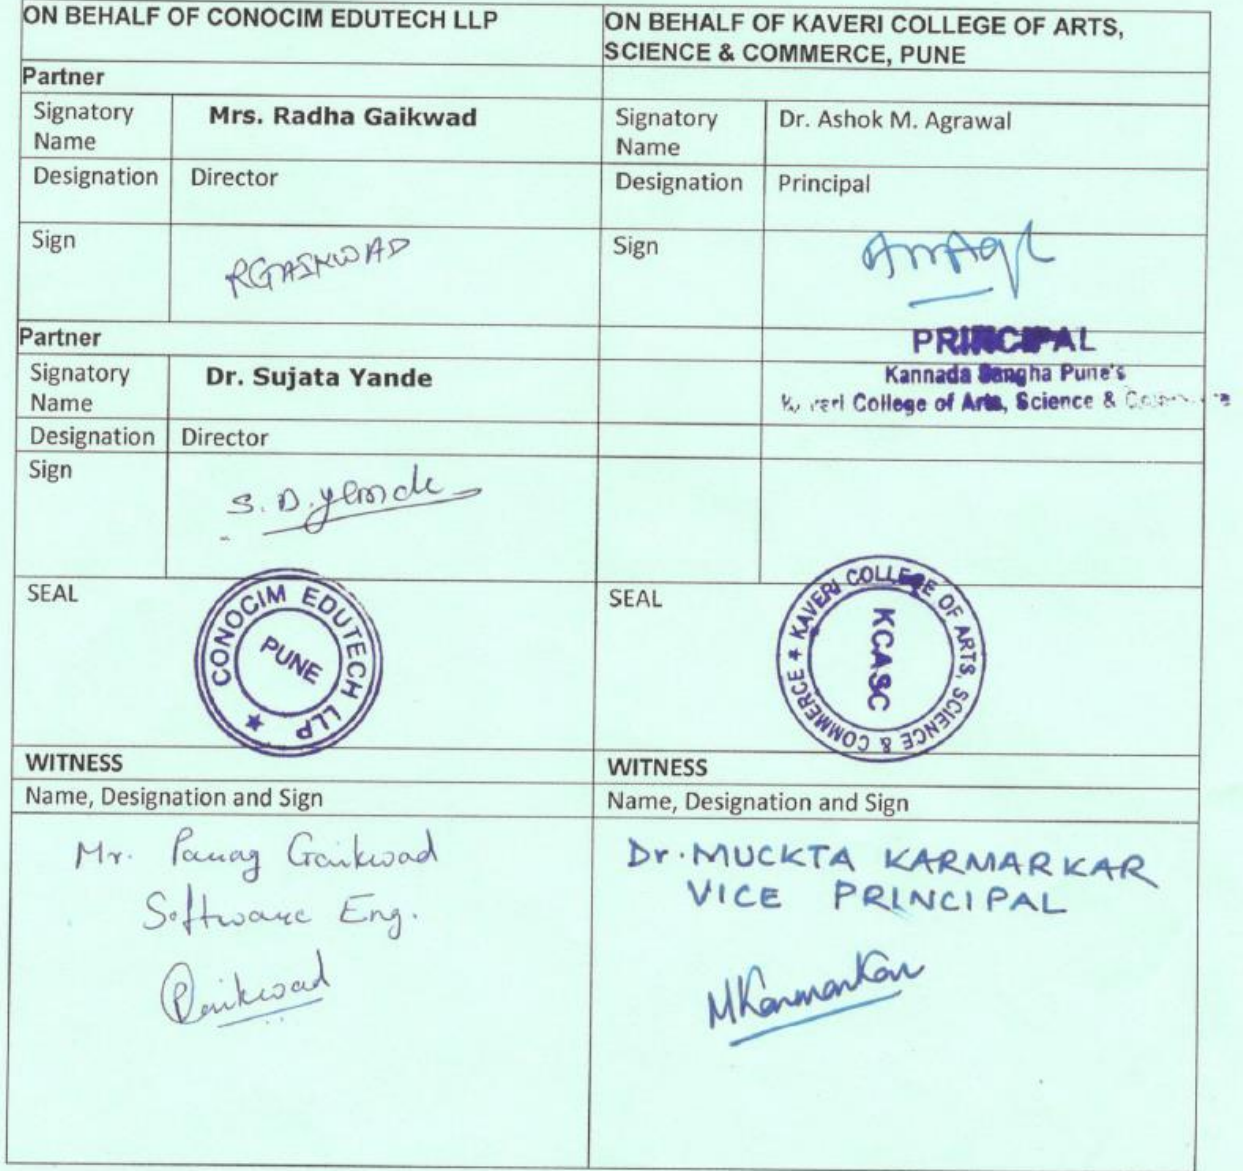 ON BEHALF OF CONOCIM EDUTECH LLP
ON BEHALF OF KAVERI COLLEGE OF ARTS,
SCIENCE & COMMERCE, PUNE
Partner
Signatory
Name
Mrs. Radha Gaikwad
Signatory
Name
Dr. Ashok M. Agrawal
Designation
Director
Designation
Principal
Sign
RGAIKWAD
Sign
Partner
PRINCIPAL
Kannada Sangha Pune's
College of Arts, Science &
Signatory
Name
Dr. Sujata Yande
Designation
Director
Sign
S. D. Yande
SEAL
CONOCIM EDUTECH LLP
PUNE
SEAL
KAVERI COLLEGE OF ARTS, SCIENCE & COMMERCE
KCASC
WITNESS
Name, Designation and Sign
Mr. Gaikwad
Software Eng.
WITNESS
Name, Designation and Sign
Dr. MUCKTA KARMARKAR
VICE PRINCIPAL
MKarmarkar